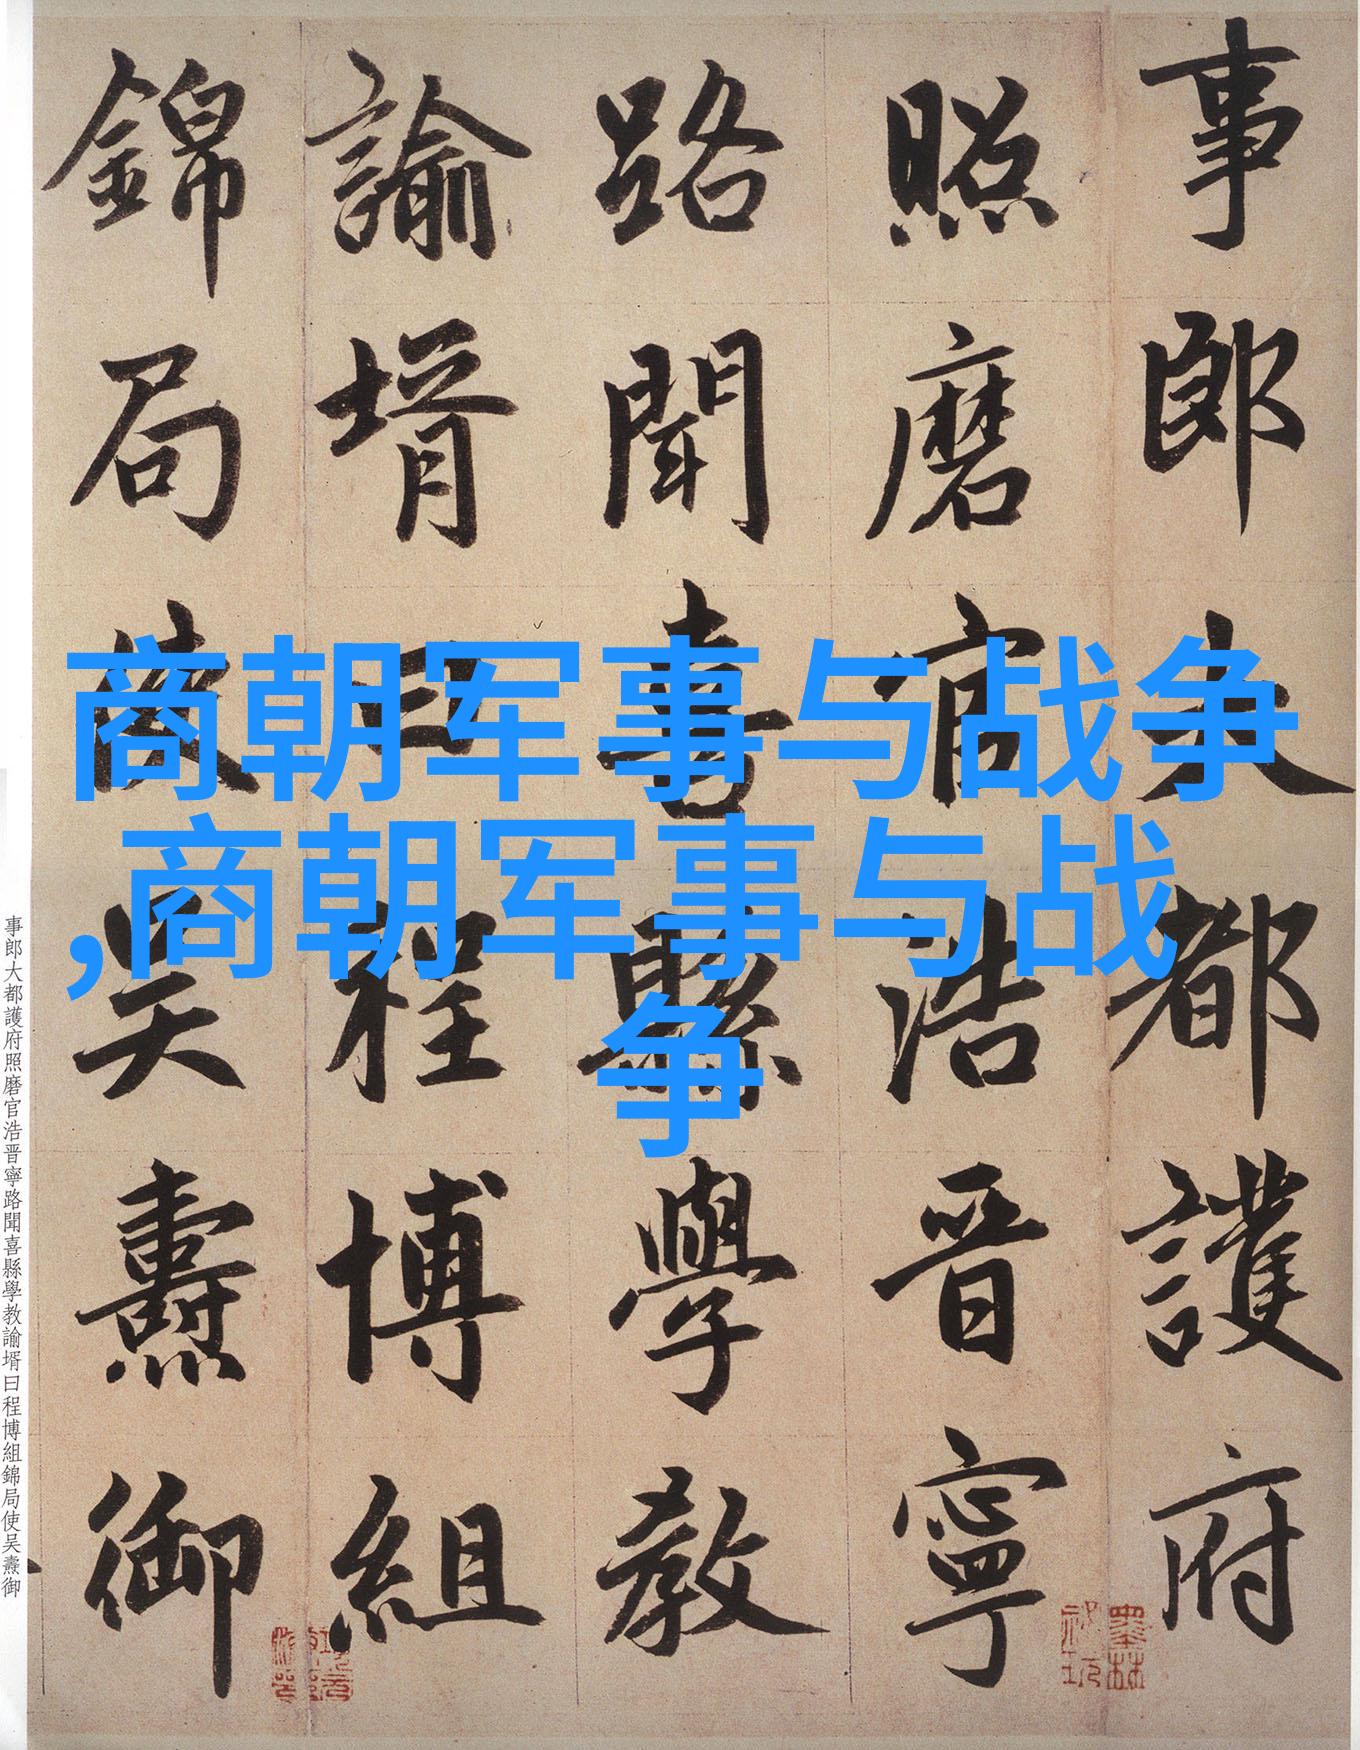 事郎大都護府
照磨官浩晋寧
路聞喜縣學教
諭壻曰程博組
錦局使吴燾御
商朝军事与战争
,商朝军事与战
争
事郎大都護府照磨官浩晋寧路聞喜縣學教諭壻曰程博組錦局使吴燾御